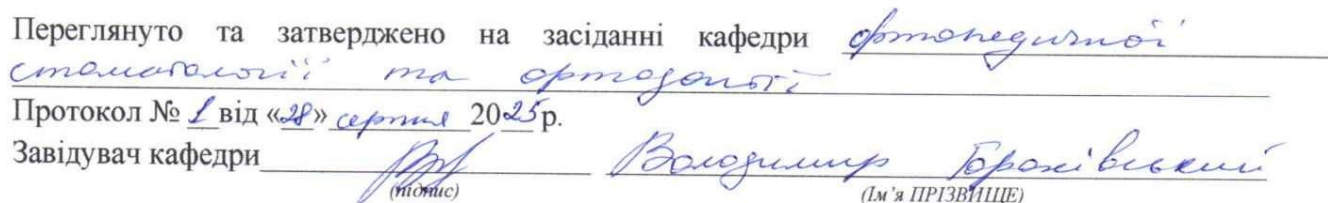 Переглянуто та затверджено на засіданні кафедри ортопедичної
стоматології та ортодонтії
Протокол № 1 від «28» серпня 2025 р.
Завідувач кафедри Володимир Горохівський
(підпис) (Ім'я ПРІЗВИЩЕ)